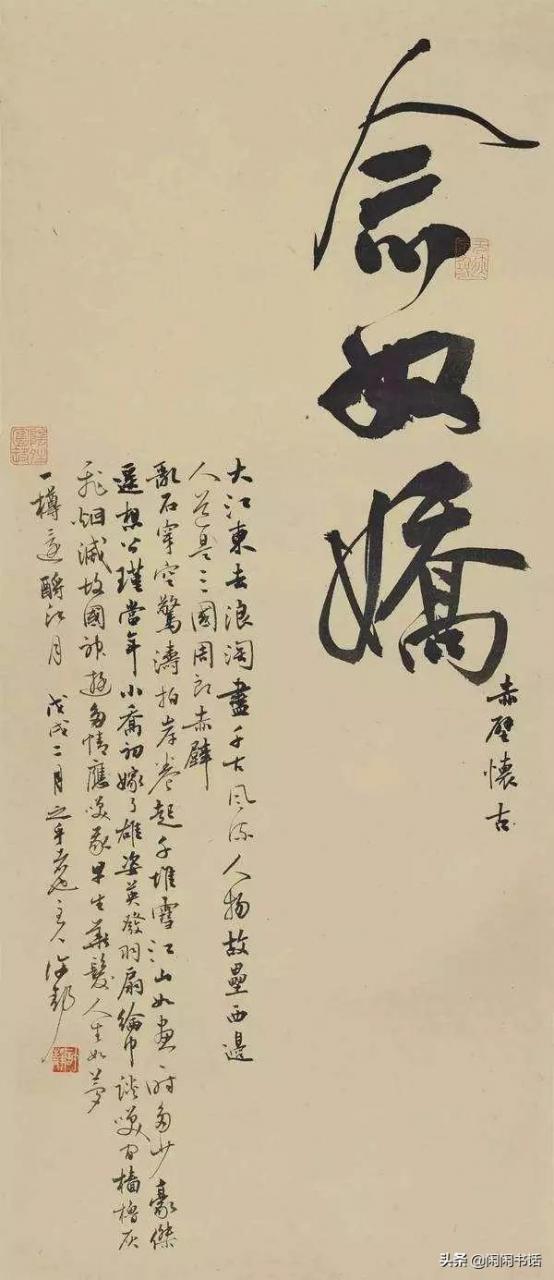 念奴嬌
赤壁懷古
大江東去浪淘盡千古風流人物故壘西邊
人道是三國周郎赤壁
亂石穿空驚濤拍岸卷起千堆雪江山如畫一時多少豪傑
遙想公瑾當年小喬初嫁了雄姿英發羽扇綸巾談笑間檣櫓灰
飛烟滅故國神遊多情應笑我早生華髮人生如夢
一樽還酹江月 戊戌二月 主人
头条 @闲闲书话